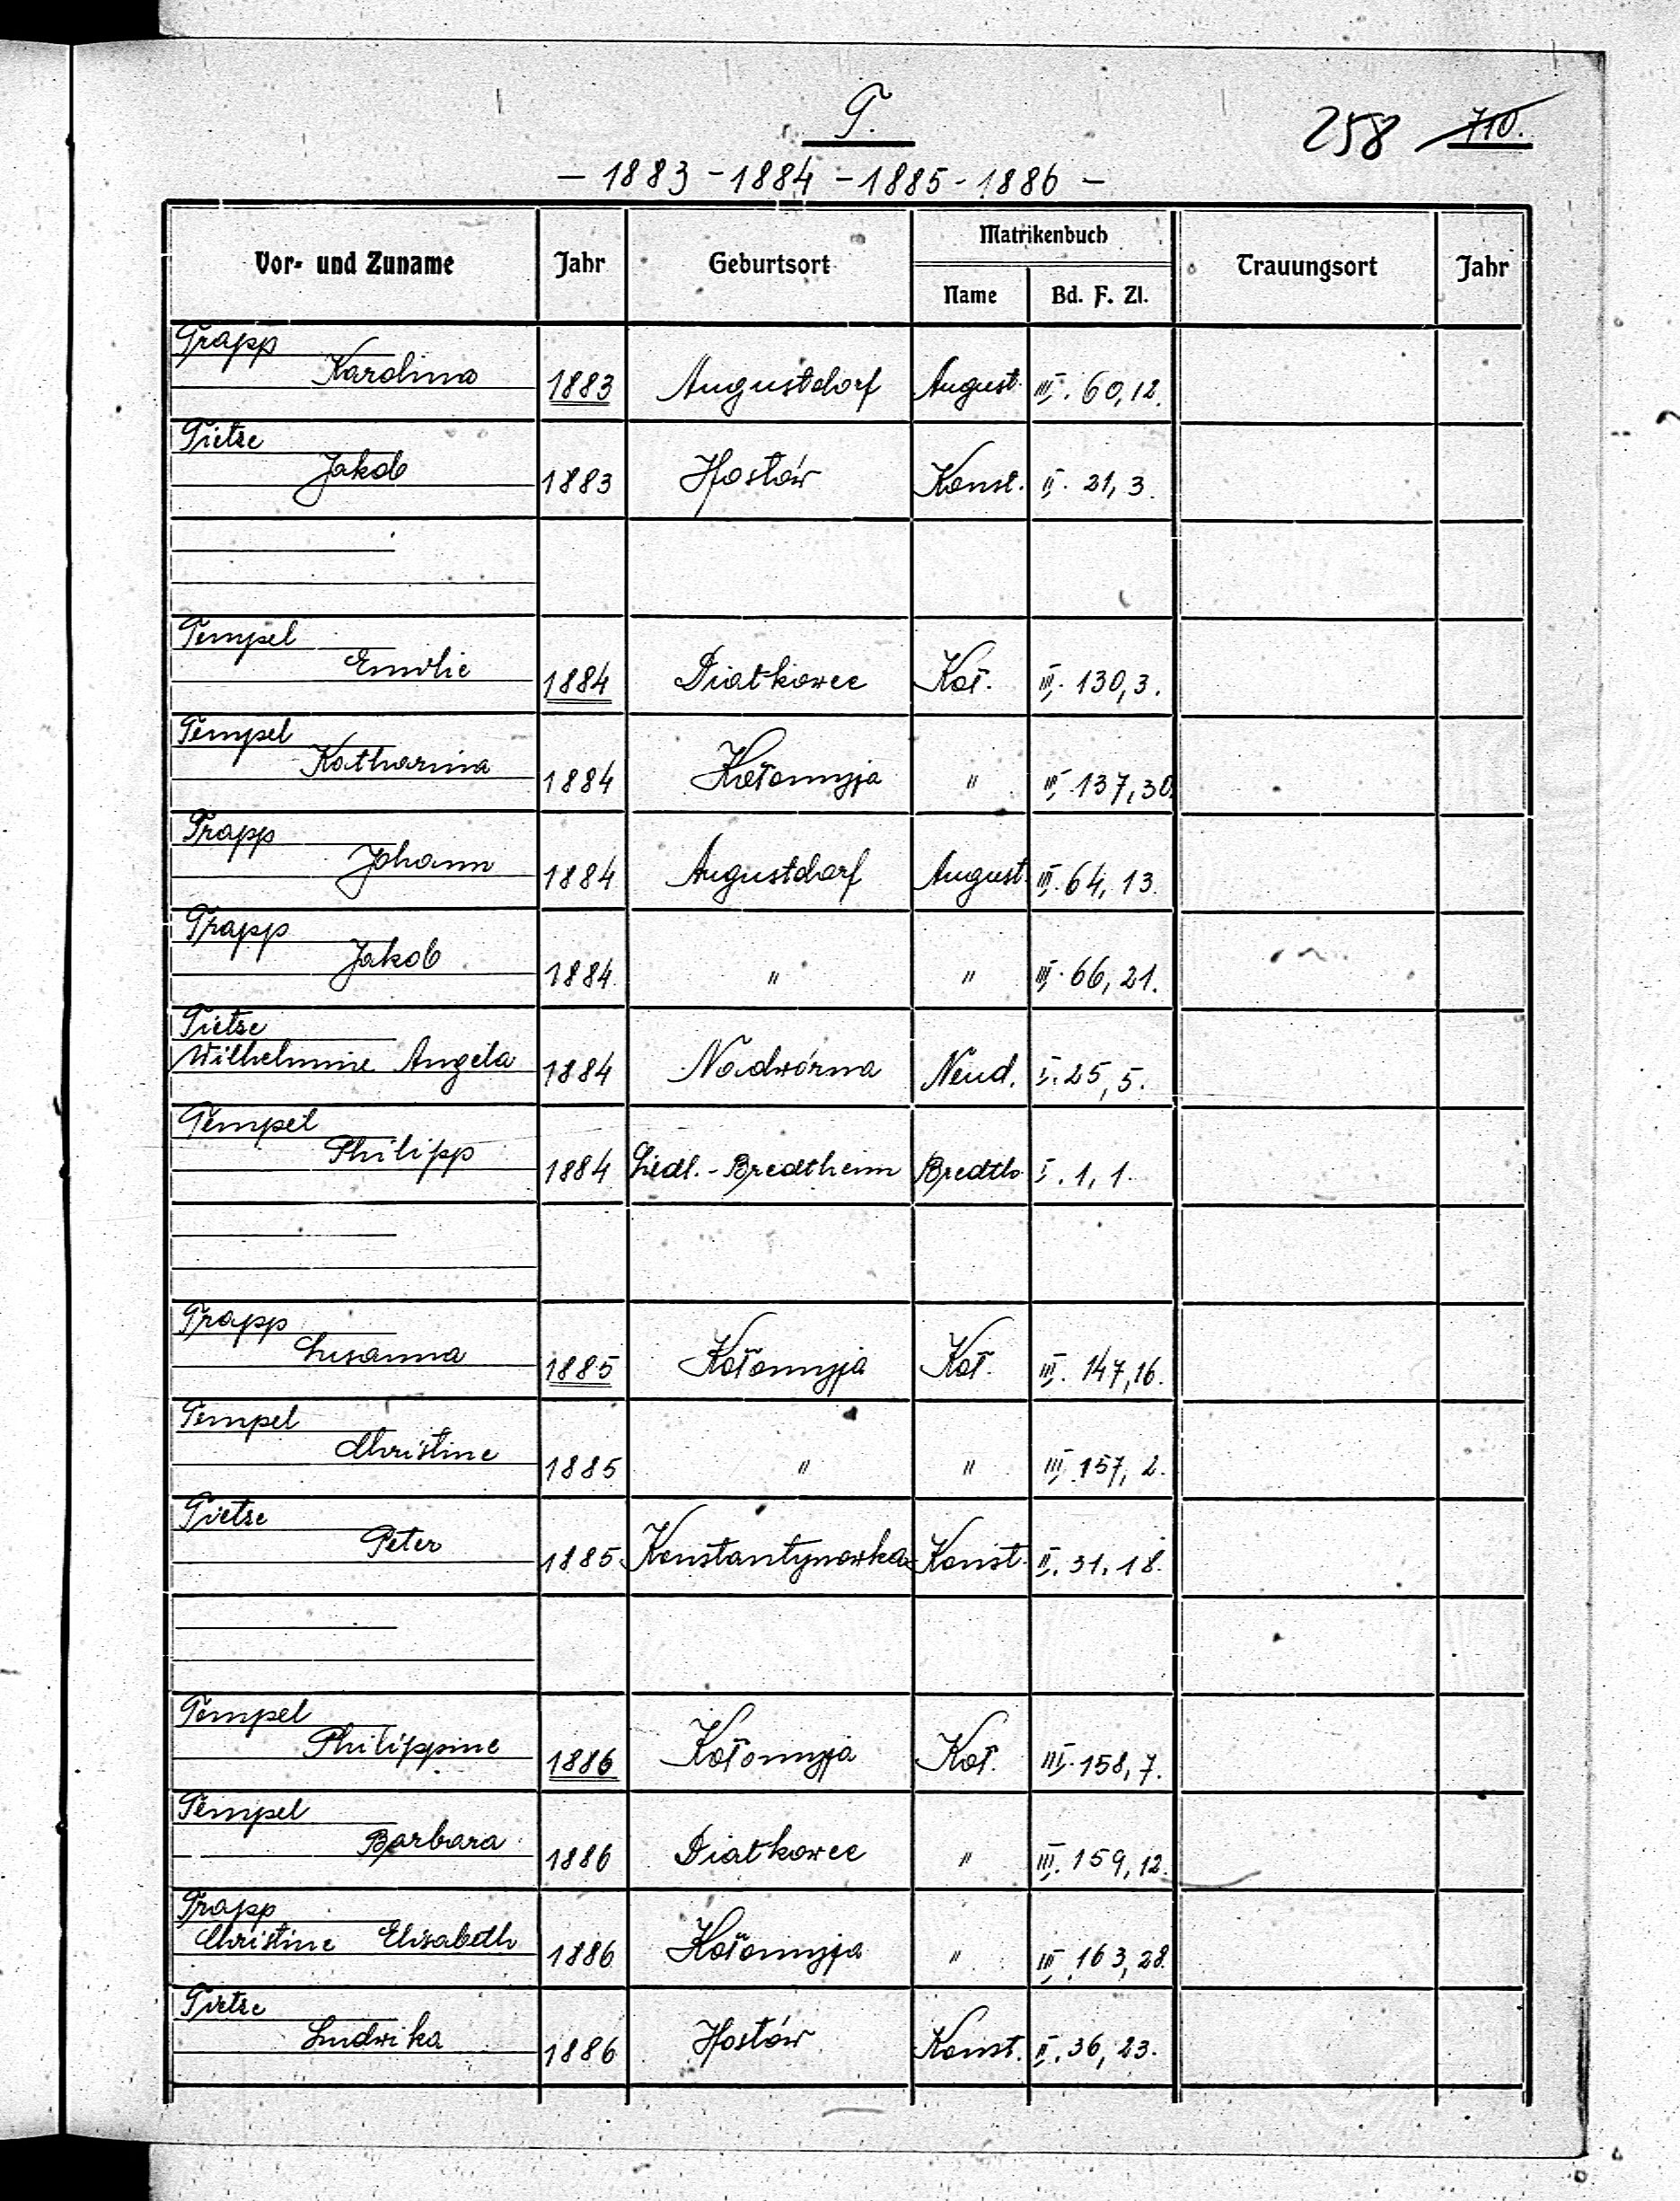 T.
258 710.
- 1883 - 1884 - 1885 - 1886 -
Vor- und Zuname Jahr Geburtsort Matrikenbuch Trauungsort Jahr
Name Bd. F. Zl.
Trapp
Karolina 1883 Augustdorf August. III. 60, 12.
Tietze
Jakob 1883 Hostów Konst. II. 21, 3.
Tempel
Emilie 1884 Diatkowce Koł. III. 130, 3.
Tempel
Katharina 1884 Kołomyja " III. 137, 30.
Trapp
Johann 1884 Augustdorf August. III. 64, 13.
Trapp
Jakob 1884 " " III. 66, 21.
Tietze
Wilhelmine Angela 1884 Nadwórna Neud. I. 25, 5.
Tempel
Philipp 1884 Siedl. - Bredtheim Bredth. I. 1, 1.
Trapp
Susanna 1885 Kołomyja Koł. III. 147, 16.
Tempel
Christine 1885 " " III. 157, 2.
Tietze
Peter 1885 Konstantynowka Konst. II. 31, 18.
Tempel
Philippine 1886 Kołomyja Koł. III. 158, 7.
Tempel
Barbara 1886 Diatkowce " III. 159, 12.
Trapp
Christine Elisabeth 1886 Kołomyja " III. 163, 28.
Tietze
Ludwika 1886 Hostów Konst. II. 36, 23.